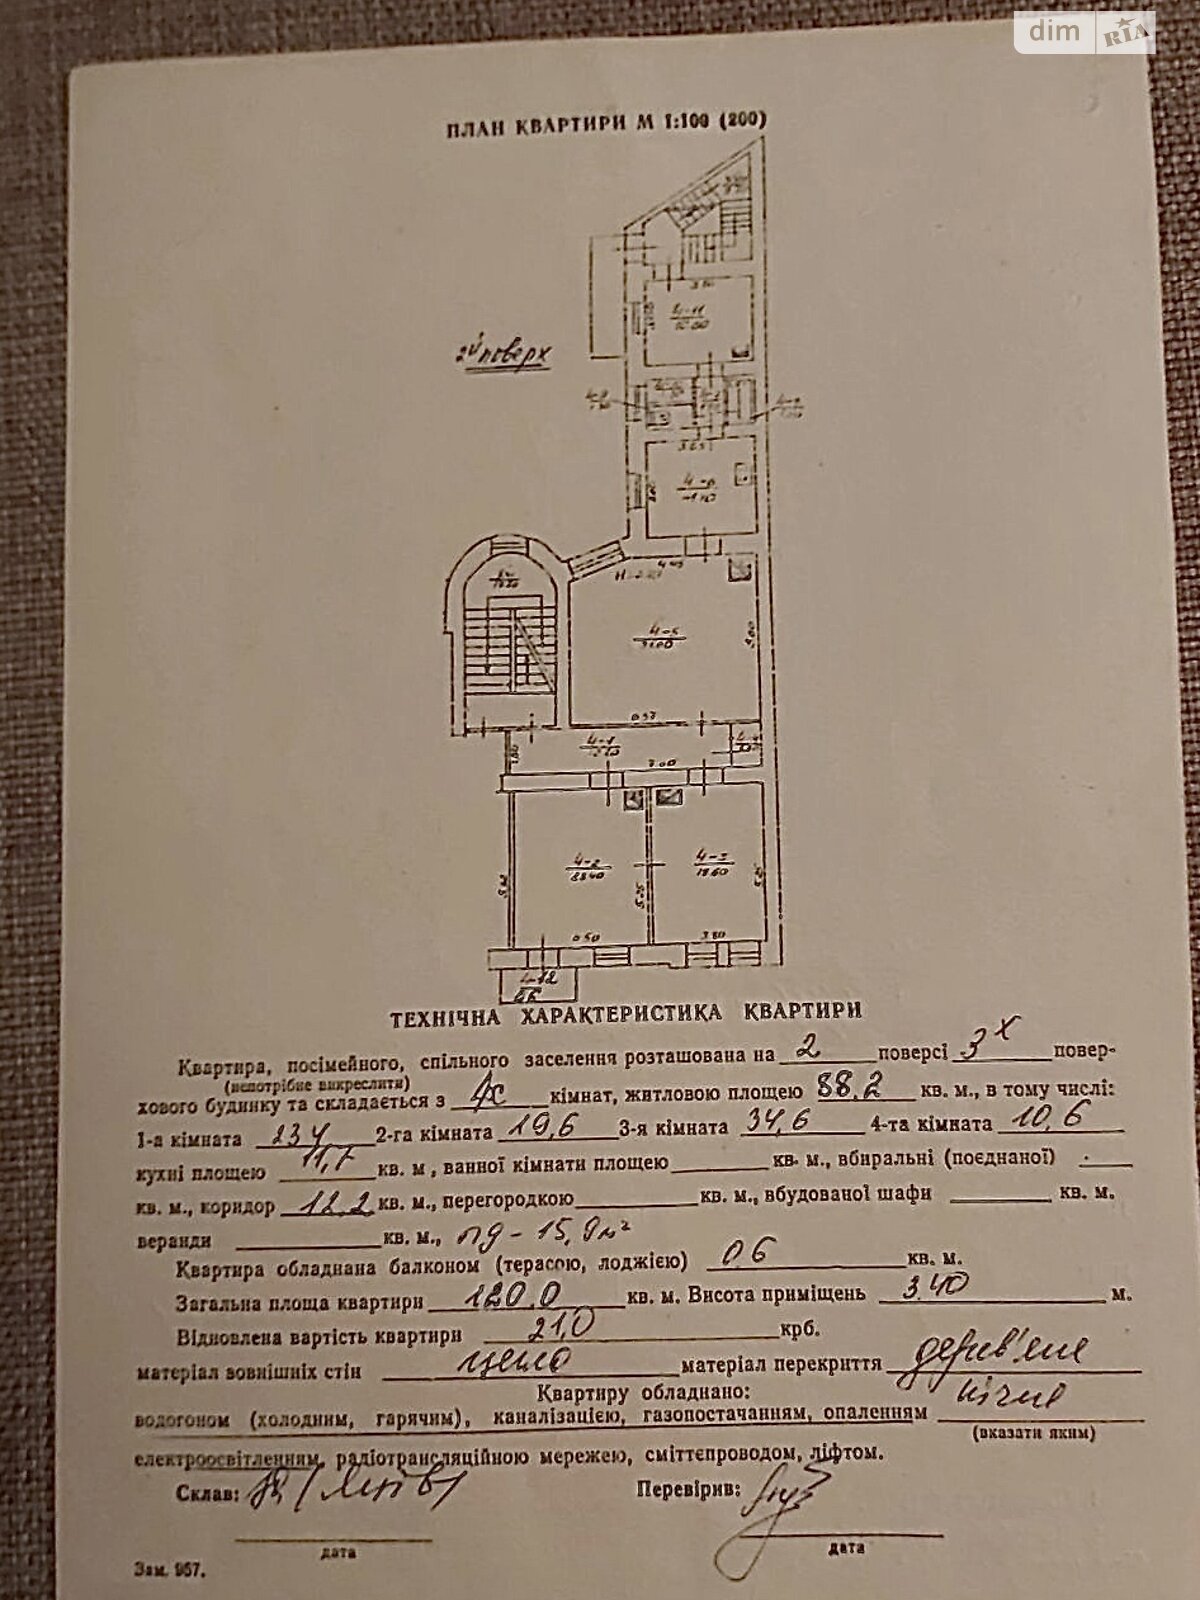 dim RIA
ПЛАН КВАРТИРИ М 1:100 (200)
2й поверх
4-11
4-6
4-5
4-1
4-2
4-3
18.60
5.25
3.80
4-12
0.6
ТЕХНІЧНА ХАРАКТЕРИСТИКА КВАРТИРИ
Квартира, посімейного, спільного заселення розташована на 2 поверсі 3х повер-
(непотрібне викреслити)
хового будинку та складається з 4х кімнат, житловою площею 88,2 кв. м., в тому числі:
1-а кімната 23,4 2-га кімната 19,6 3-я кімната 34,6 4-та кімната 10,6
кухні площею 11,7 кв. м, ванної кімнати площею кв. м., вбиральні (поєднаної)
кв. м., коридор 12.2 кв. м., перегородкою кв. м., вбудованої шафи кв. м.
веранди кв. м., - 15,9 м²
Квартира обладнана балконом (терасою, лоджією) 0.6 кв. м.
Загальна площа квартири 120,0 кв. м. Висота приміщень 3.40 м.
Відновлена вартість квартири 21,0 крб.
матеріал зовнішніх стін матеріал перекриття дерев'яне
Квартиру обладнано:
водогоном (холодним, гарячим), каналізацією, газопостачанням, опаленням пічне
(вказати яким)
електроосвітленням, радіотрансляційною мережею, сміттєпроводом, ліфтом.
Склав: Перевірив:
дата дата
Зам. 957.